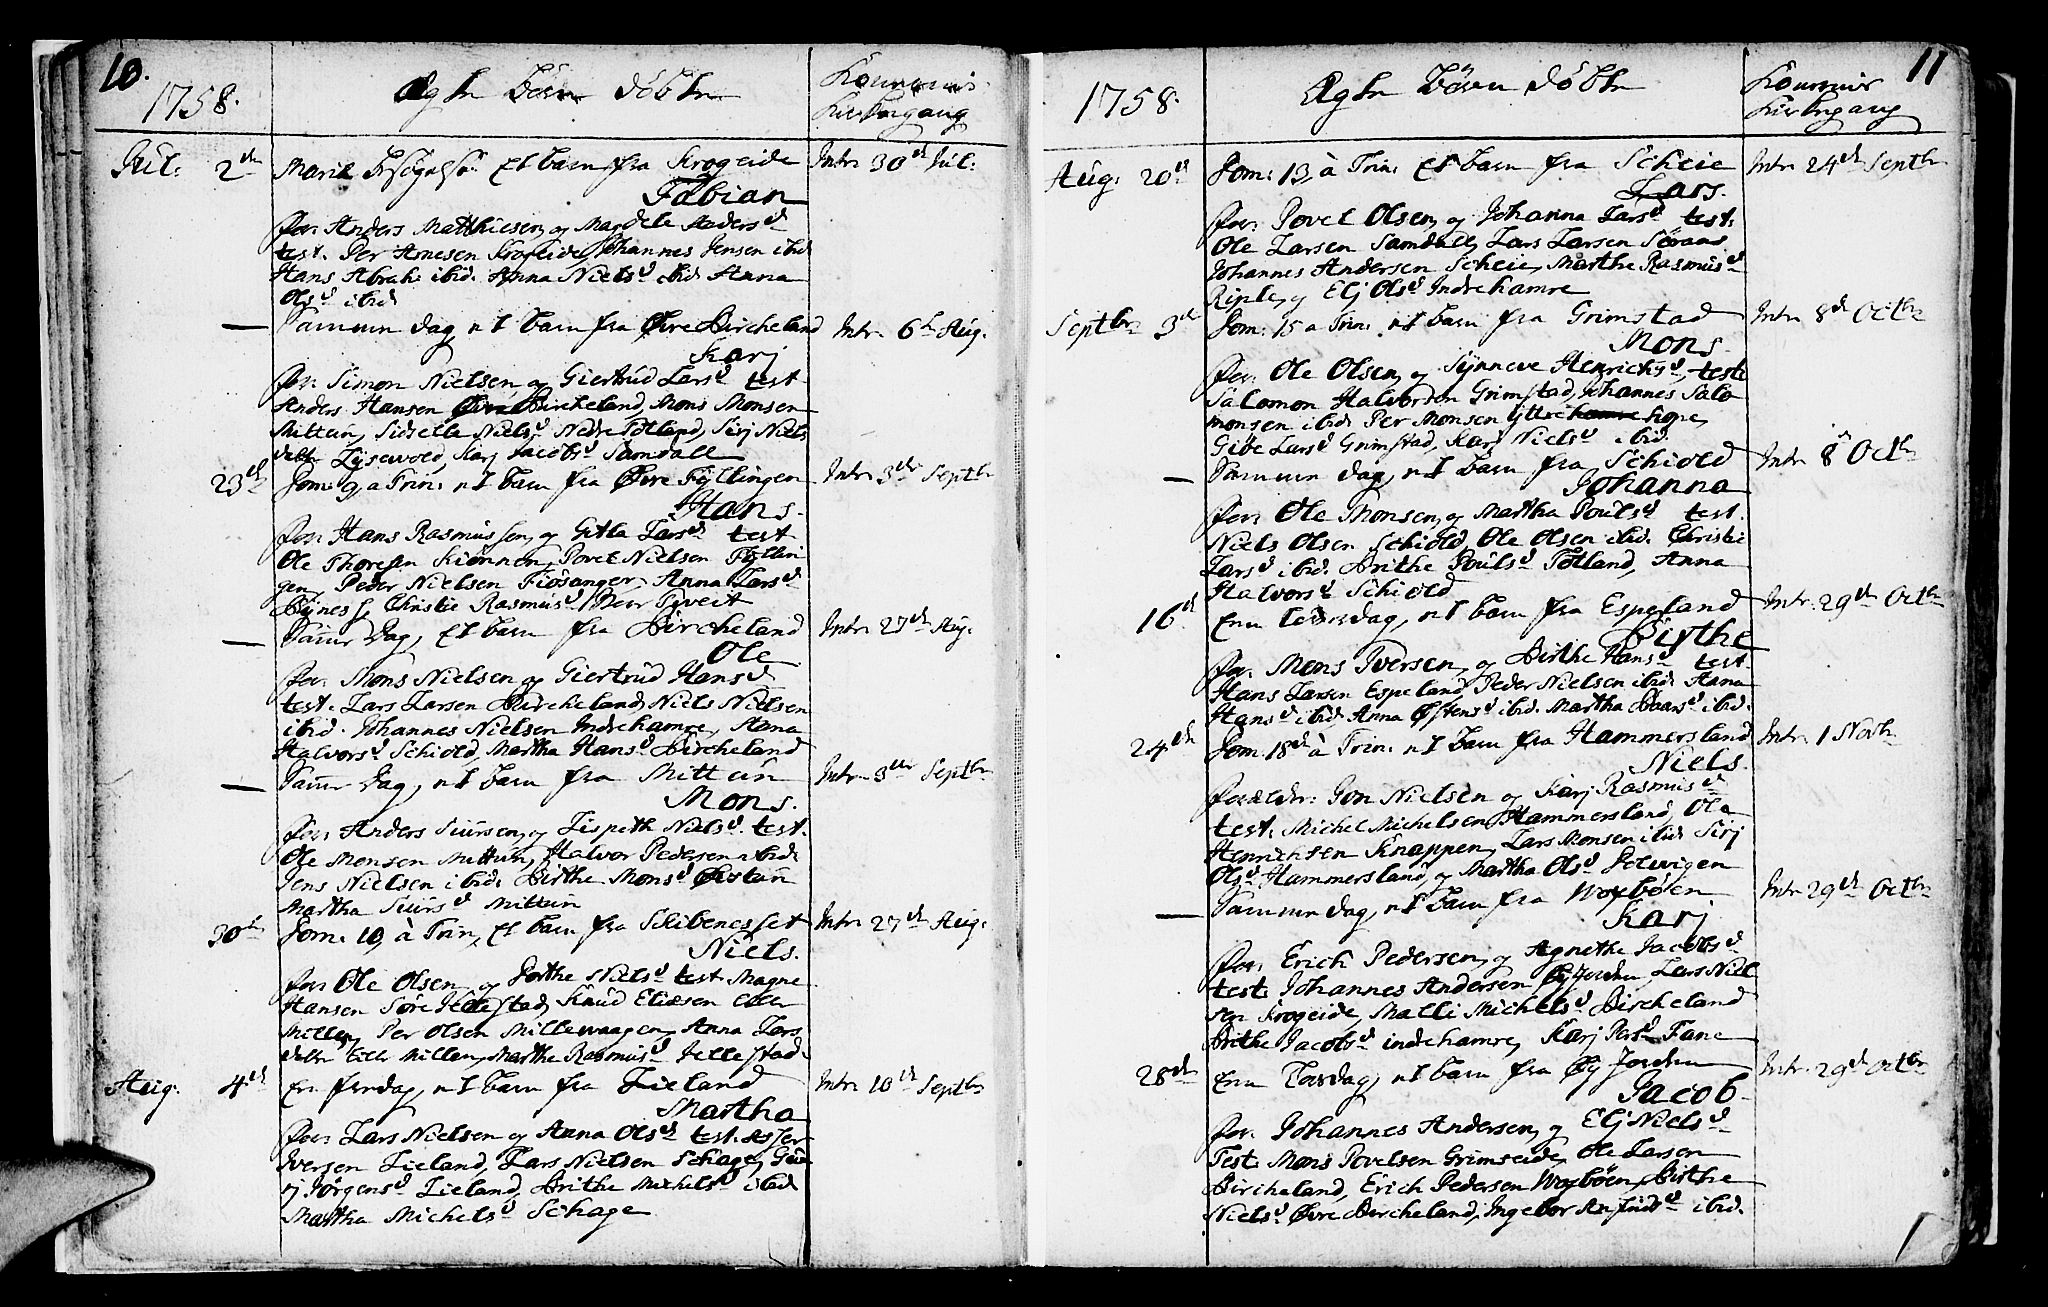 10.
1758. Ægte börn döbte Konernis
Kirkegang
Jul: 2de Mariæ besögelse et barn fra Krogeide Intr. 30te Jul:
Fabian
for: Anders Matthiesen og Magdele Andersd
test. Per Arnesen Krogeide, Johannes Jensen ibid
Hans Abrah: ibid. Anna Nielsd ibid Anna
Olsd ibid
— Samme dag, et barn fra Øvre Bircheland Intr. 6te Aug.
Karj
for: Simon Nielsen og Giertrud Larsd test
Anders Hansen Øvre Bircheland, Mons Monsen
Mittun, Sidselle Nielsd Nedre Totland, Sirj Niels
datter Lysevold, Karj Jacobsd Samdall
23de Dom: 9 a Trin: et barn fra Øvre Fyllingen Intr. 3de Septbr
Hans.
for: Hans Rasmussen, og Gitla Larsd test
Ole Thoresen Kiönnen, Povel Nielsen Fyllin
gen, Peder Nielsen Fiösanger, Anna Larsd
Bynes, Christie Rasmusd Tveit
— Samme Dag, et barn fra Bircheland Intr. 27de Aug.
Ole
for: Mons Nielsen og Giertrud Hansd
test. Lars Larsen Bircheland, Niels Nielsen
ibid. Johannes Nielsen Indrehamre, Anna
Halvorsd Schiold, Martha Hansd Bircheland
— Samme Dag, et barn fra Mittun Intr. 3de Septbr
Mons.
for: Anders Siursen, og Lispeth Nielsd test.
Ole Monsen Mittun, Halvor Pedersen ibid
Jens Nielsen ibid. Birthe Monsd Øistun
Martha Siursd Mittun
30te Dom: 10 à Trin, et barn fra Skibenesset Intr. 27de Aug:
Niels.
for: Ole Olsen, og Dorthe Nielsd test. Magne
Hansen Söre Jellestad, Knud Eliæsen
Millen, Per Olsen Millewaagen, Anna Lars
datter Millen, Marthe Rasmusd Jellestad.
Aug: 4de En fredag, et barn fra Lieland Intr. 10de Septbr
Martha
for: Lars Nielsen og Anna Olsd test. Asser
Iversen Lieland, Lars Nielsen Schage, Gur
rj Jörgensd Lieland, Brithe Michelsd ibid
Martha Michelsd Schage
11
1758. Ægte börn döbte Konernis
Kirkegang
Aug: 20de Dom: 13 à Trin: et barn fra Scheie Intr. 24de Septbr
Lars.
for: Povel Olsen, og Johanna Larsd test.
Ole Larsen Samdall, Lars Larsen Söraas
Johannes Andersen Scheie, Marthe Rasmusd
Riple, og Elj Olsd Indrehamre
Septbr 3de Dom: 15 a Trin: et barn fra Grimstad Intr. 8de Octbr
Mons
for: Ole Olsen, og Synneve Henrichsd, test:
Salomon Halvorsen Grimstad, Johannes Salo
monsen ibid. Per Monsen Yttre hamre hope,
Gibe Larsd Grimstad, Karj Nielsd ibid.
— Samme dag, et barn fra Schiold Intr. 8de Octbr
Johanna
for: Ole Monsen, og Martha Poulsd test.
Niels Olsen Schiold, Ole Olsen ibid. Christie
Larsd ibid. Brithe Poulsd Totland, Anna
Halvorsd Schiold
16de En löverdag, et barn fra Espeland Intr. 29de Octbr
Birthe
for: Mons Iversen, og Birthe Hansd test.
Hans Larsen Espeland, Peder Nielsen ibid. Anna
Hansd ibid, Anna Østensd ibid. Martha Baarsd ibid.
24de Dom: 18de à Trin: et barn fra Hammersland Intr. 1 Novbr
Niels.
forældr: Jon Nielsen og Karj Rasmusd
test. Michel Michelsen Hammersland, Ole
Henrichsen Knappen, Lars Monsen ibid. Sirj
Olsd Hammersland, og Martha Olsd Solwigen
— Samme dag, et barn fra Woxböen Intr 29de Octbr
Karj
for: Erich Pedersen, og Agnethe Jacobsd
test: Johannes Andersen Øyjorden, Lars Niel
sen Krogeide, Malli Michelsd Bircheland
Brithe Jacobsd indrehamre, Karj Persd Fane
28de En Torsdag, et barn fra Øy Jorden Intr. 29de Octbr
Jacob.
for: Johannes Andersen, og Elj Nielsd
Test: Mons Povelsen Grimseide, Ole Larsen
Bircheland, Erich Pedersen Woxböen, Birthe
Nielsd Øvre Bircheland, Ingebor Anfindsd ibid.